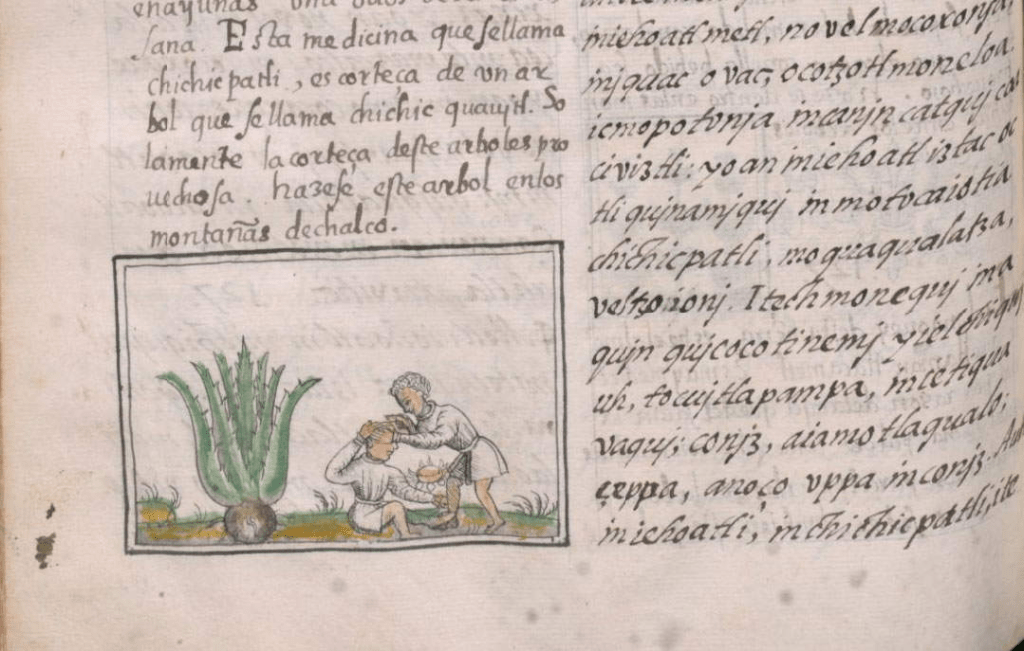 en ayunas una
sana. Esta medicina que se llama
chichicpatli, es corteça de vn ar
bol que se llama chichic quauitl. So
lamente la corteça deste arbol es pro
uechosa. hazese este arbol en los
montañas de chalco.
iniehoatl metl, no vel mocoxonja
injquac ovac, ocotzotl moneloa
ic mopotonja, in canjn catquj coa
civiztli: yoan iniehoatl iztac
tli qujnamjquj in motocaiotia
chichicpatli, moquaqualatza,
vel tzoionj. Itech monequj in a
qujn qujcocotinemj yielchiqu
uh, tocuitlapampa, in ietiqua
vaquj; conjz, aiamo tlaqualo;
ceppa, anoço vppa in conjz. Auh
iniehoatl, in chichicpatli, itc